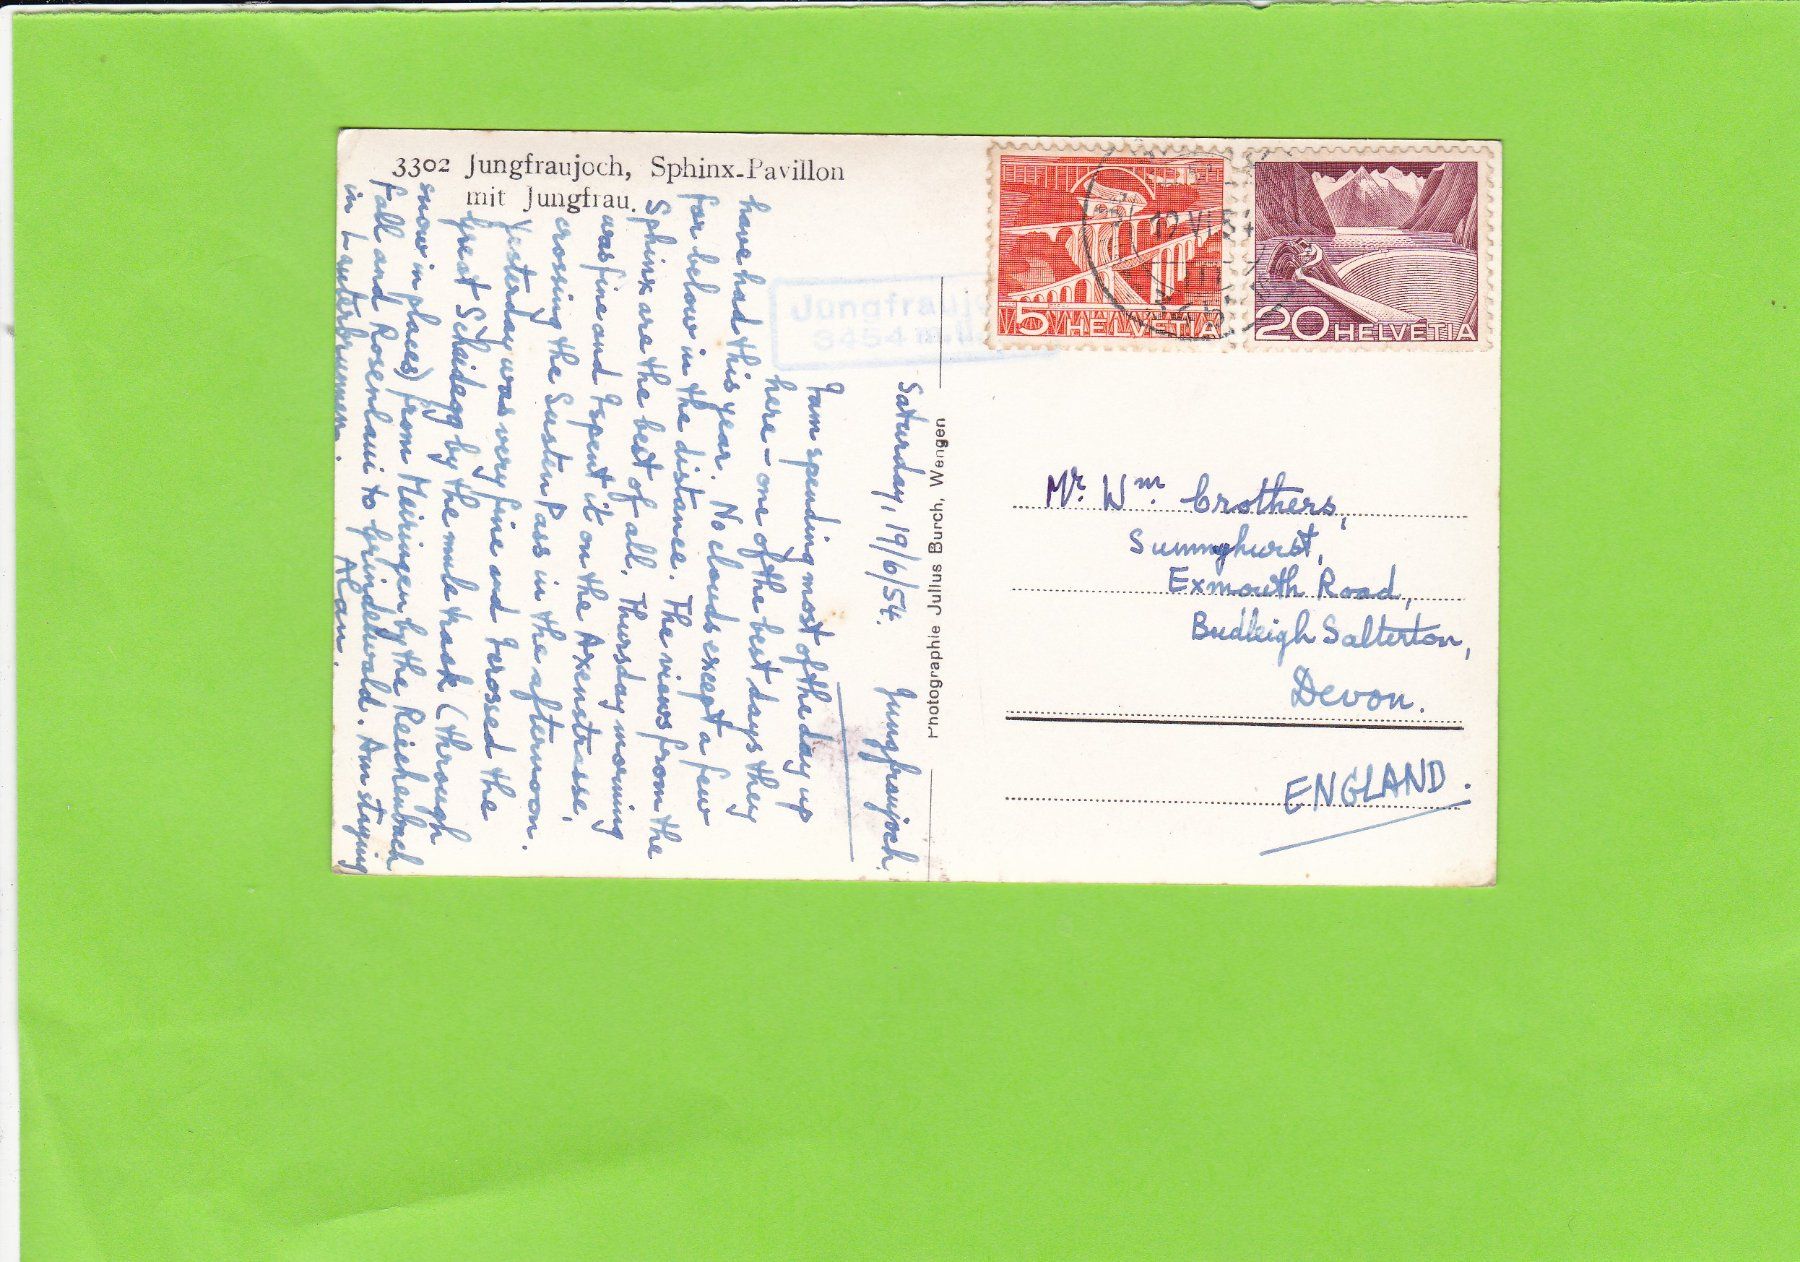 3302 Jungfraujoch, Sphinx-Pavillon
mit Jungfrau.
Jungfraujo
3454 m.ü.
5 HELVETIA
20 HELVETIA
19 VI 54
Saturday, 19/6/54. Jungfraujoch.
I am spending most of the day up
here - one of the best days they
have had this year. No clouds except a few
far below in the distance. The views from the
Sphinx are the best of all. Thursday morning
was fine and I spent it on the Axenstrasse,
crossing the Susten Pass in the afternoon.
Yesterday was very fine and I crossed the
Great Scheidegg by the mule track (through
snow in places) from Meiringen by the Reichenbach
fall and Rosenlaui to Grindelwald. Am staying
in Lauterbrunnen. Alan.
Photographie Julius Burch, Wengen
Mr. Wm. Crothers,
Sunnyhurst,
Exmouth Road,
Budleigh Salterton,
Devon.
ENGLAND.